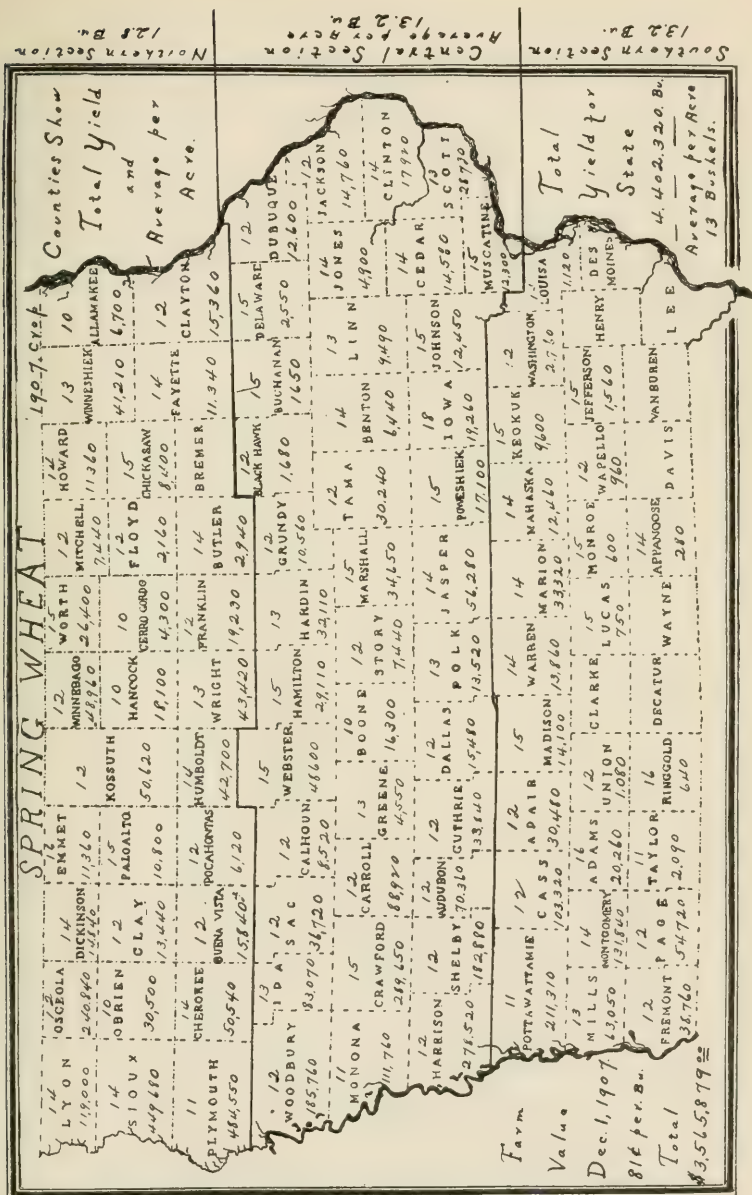 SPRING WHEAT
1907. Crop.
Counties Show
Total Yield
and
Average per
Acre.
Northern Section
12.8 Bu.
Central Section
Average per Acre
13.2 Bu.
Southern Section
13.2 Bu.
14
LYON
119,000
OSCEOLA
240,840
14
DICKINSON
14,840
EMMET
11,360
12
WINNEBAGO
48,960
15
WORTH
26,400
12
MITCHELL
7,440
HOWARD
11360
13
WINNESHIEK
41,210
10
ALLAMAKEE
6,700
14
SIOUX
449,680
10
OBRIEN
30,500
12
CLAY
13,440
15
PALOALTO
10,800
12
KOSSUTH
50,620
10
HANCOCK
18,100
10
CERRO GORDO
4,300
12
FLOYD
2,160
15
CHICKASAW
8,400
14
FAYETTE
11,340
12
CLAYTON
15,360
11
PLYMOUTH
484,550
14
CHEROKEE
50,540
12
BUENA VISTA
15,840
12
POCAHONTAS
6,120
14
HUMBOLDT
42,700
13
WRIGHT
43,420
12
FRANKLIN
19,230
14
BUTLER
2,940
BREMER
12
WOODBURY
185,760
13
IDA
83,070
12
SAC
36,720
12
CALHOUN
8,520
15
WEBSTER
48600
15
HAMILTON
29,110
13
HARDIN
32,110
12
GRUNDY
10,560
12
BLACK HAWK
1,680
15
BUCHANAN
1650
15
DELAWARE
2,550
12
DUBUQUE
12,600
11
MONONA
111,760
15
CRAWFORD
289,650
12
CARROLL
88,920
13
GREENE
4,550
10
BOONE
16,300
12
STORY
7,440
15
MARSHALL
34,650
12
TAMA
30,240
14
BENTON
6,440
13
LINN
9,490
14
JONES
4,900
12
JACKSON
14,760
14
CLINTON
17920
12
HARRISON
278,520
12
SHELBY
182,880
12
AUDUBON
70,360
12
GUTHRIE
133,840
12
DALLAS
15,480
13
POLK
13,520
14
JASPER
56,280
15
POWESHIEK
17,100
18
IOWA
19,260
15
JOHNSON
12,450
14
CEDAR
14,580
13
SCOTT
28,730
15
MUSCATINE
12,300
11
POTTAWATTAMIE
211,310
12
CASS
103,320
12
ADAIR
30,480
15
MADISON
14,100
14
WARREN
13,860
14
MARION
33,320
14
MAHASKA
12,460
15
KEOKUK
9,600
WASHINGTON
LOUISA
1,120
13
MILLS
63,050
14
MONTGOMERY
131,840
16
ADAMS
20,260
12
UNION
1,080
CLARKE
15
LUCAS
750
15
MONROE
600
12
WAPELLO
960
15
JEFFERSON
1,560
HENRY
DES
MOINES
12
FREMONT
38,760
12
PAGE
54720
11
TAYLOR
2,090
16
RINGGOLD
640
DECATUR
WAYNE
14
APPANOOSE
280
DAVIS
VANBUREN
LEE
Farm
Value
Dec. 1, 1907.
81¢ per. Bu.
Total
$3,565,879.00
Total
Yield for
State
4,402,320. Bu.
Average per Acre
13 Bushels.